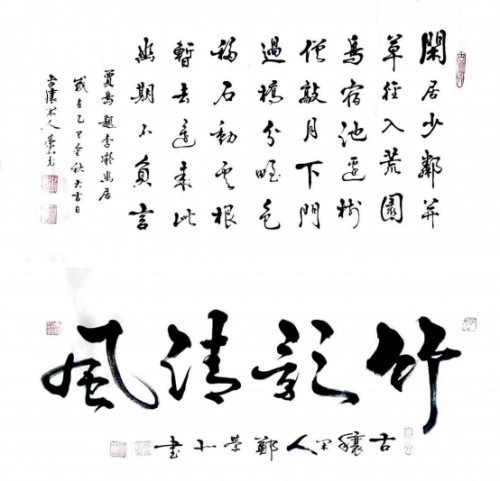 閑居少鄰并
草徑入荒園
鳥宿池邊樹
僧敲月下門
過橋分野色
移石動雲根
暫去還來此
幽期不負言
賈島題李凝幽居
歲在乙巳金秋大吉日
竹影清風
古穰閑人鄭榮書